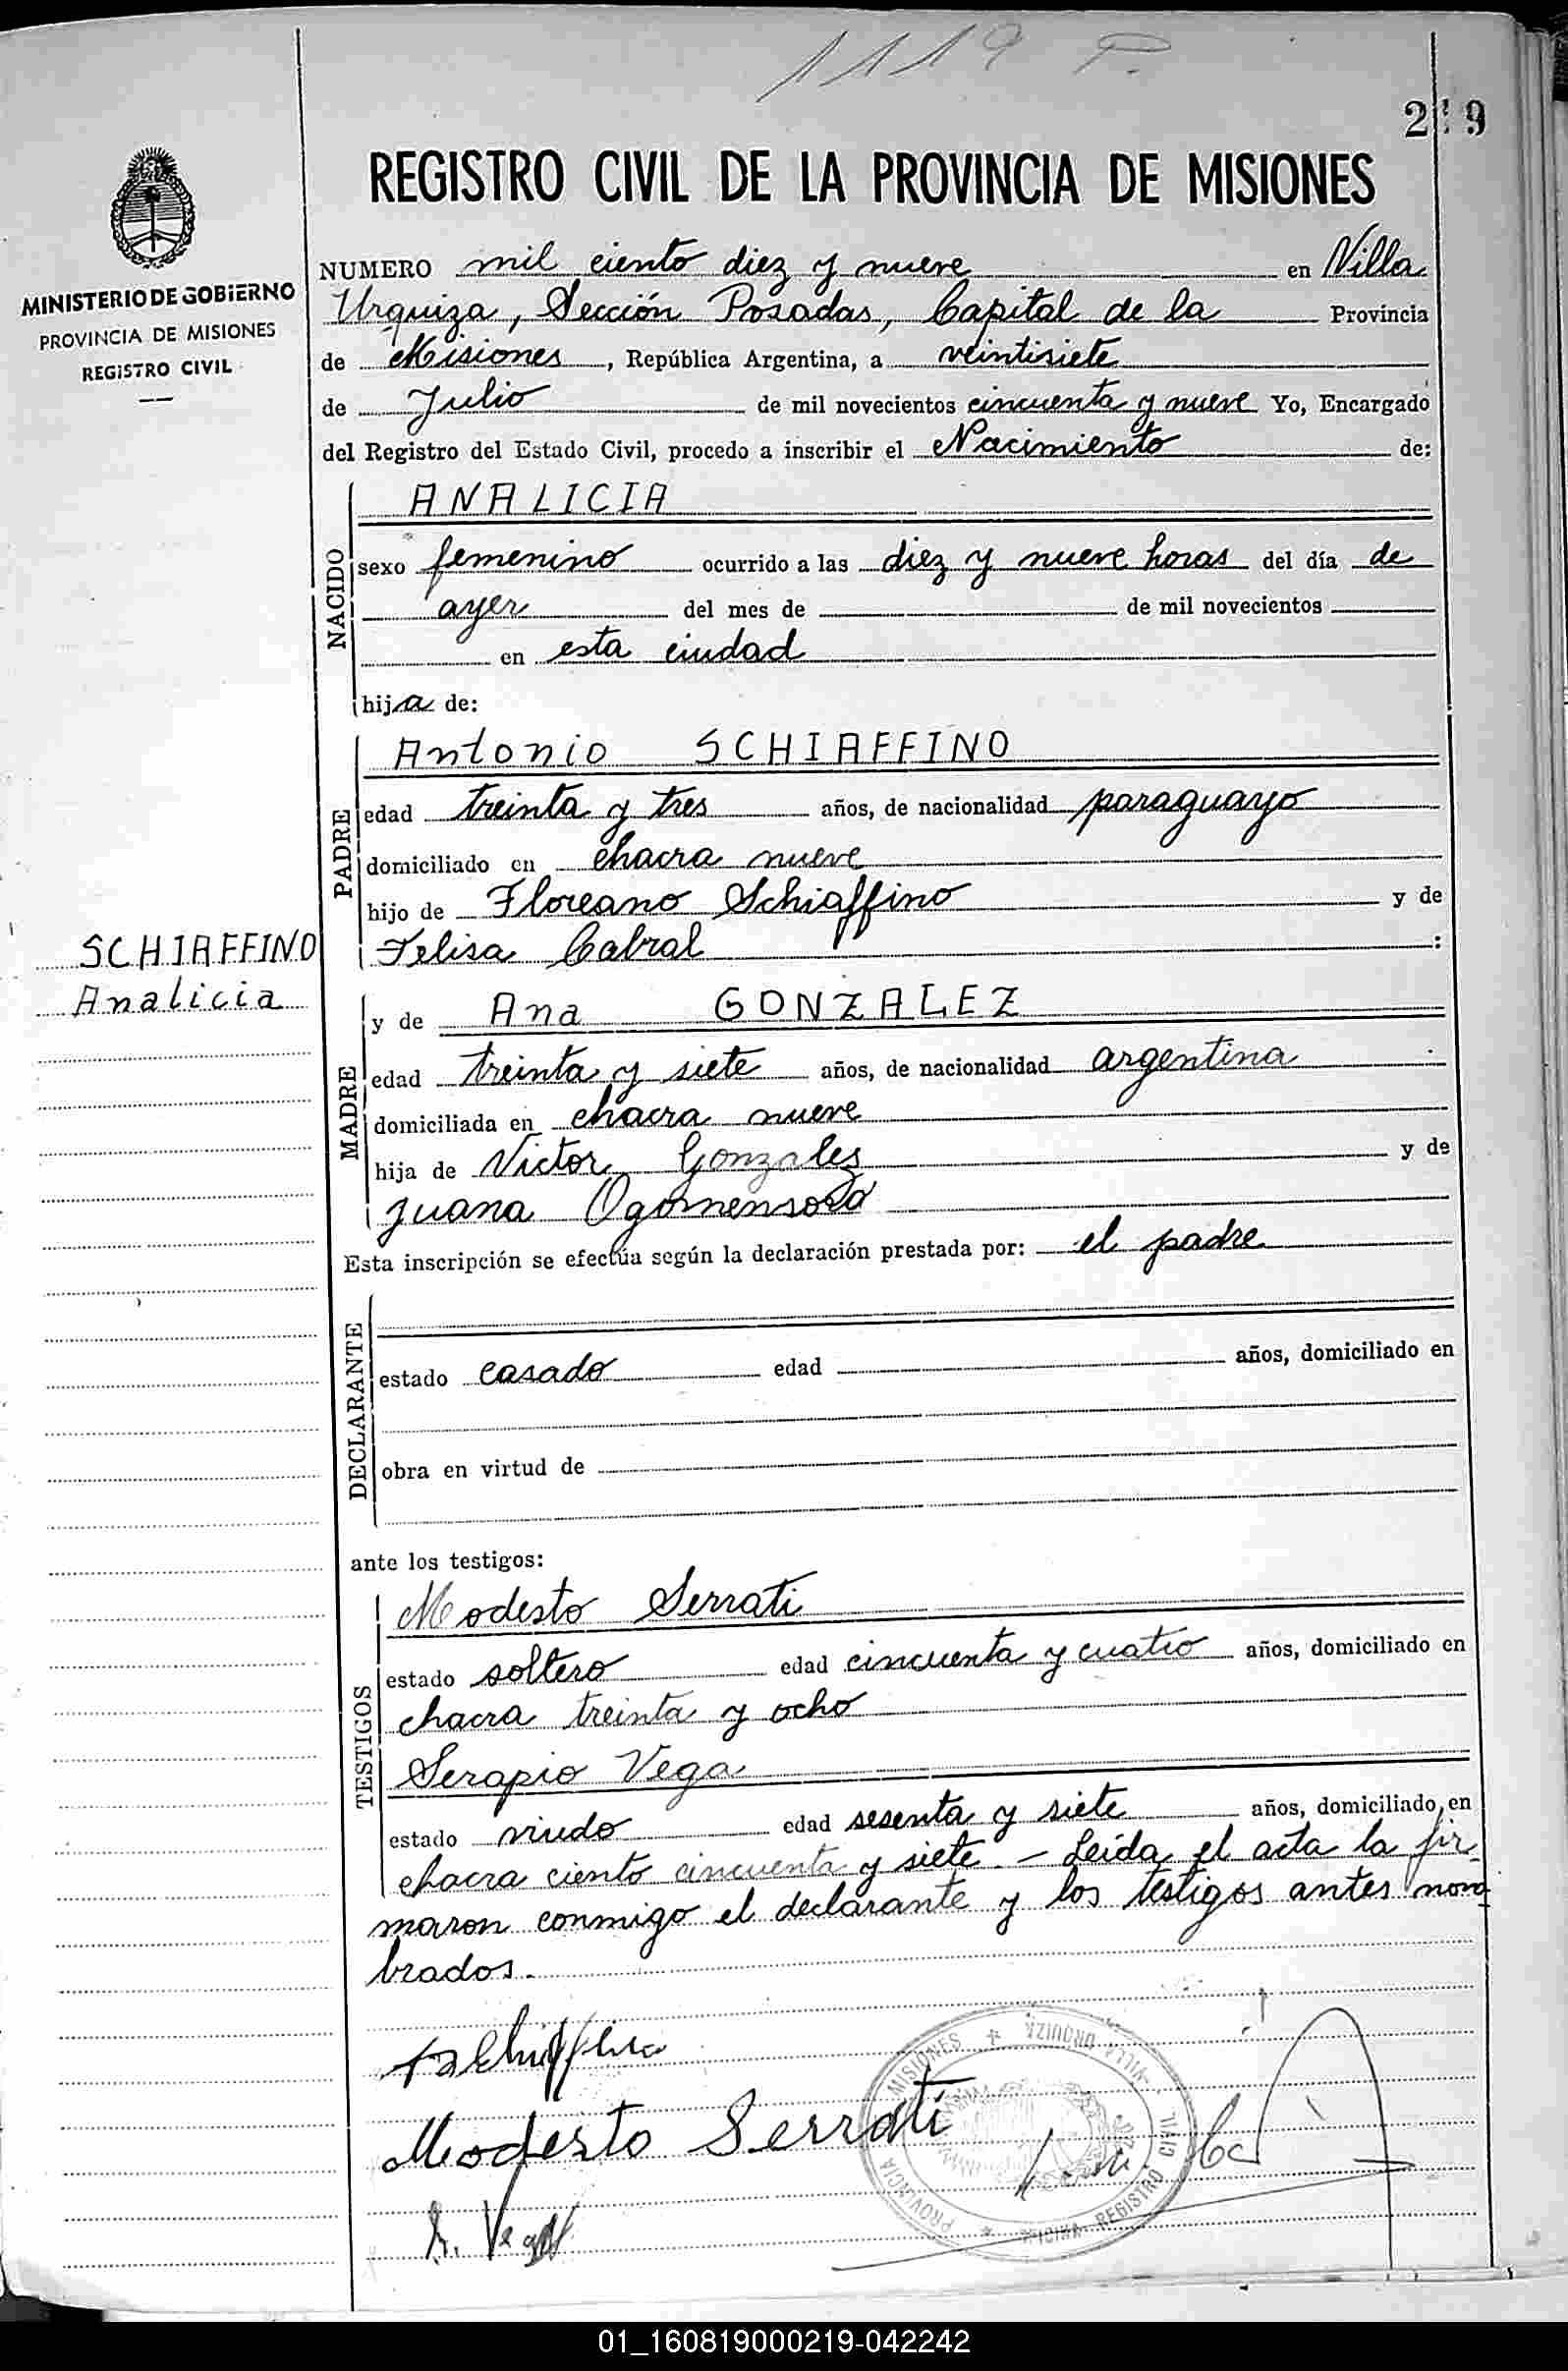 1119 P.
219
MINISTERIO DE GOBIERNO
PROVINCIA DE MISIONES
REGISTRO CIVIL
REGISTRO CIVIL DE LA PROVINCIA DE MISIONES
NUMERO mil ciento diez y nueve en Villa
Urquiza, Sección Posadas, Capital de la Provincia
de Misiones, República Argentina, a veintisiete
de Julio de mil novecientos cincuenta y nueve Yo, Encargado
del Registro del Estado Civil, procedo a inscribir el Nacimiento de:
NACIDO
ANALICIA
sexo femenino ocurrido a las diez y nueve horas del día de
ayer del mes de de mil novecientos
en esta ciudad
hija de:
PADRE
Antonio SCHIAFFINO
edad treinta y tres años, de nacionalidad paraguayo
domiciliado en chacra nueve
hijo de Floreano Schiaffino y de
Felisa Cabral :
SCHIAFFINO
Analicia
MADRE
y de Ana GONZALEZ
edad treinta y siete años, de nacionalidad argentina
domiciliada en chacra nueve
hija de Victor Gonzalez y de
Juana
Esta inscripción se efectúa según la declaración prestada por: el padre
DECLARANTE
estado casado edad años, domiciliado en
obra en virtud de
ante los testigos:
TESTIGOS
Modesto Serrati
estado soltero edad cincuenta y cuatro años, domiciliado en
chacra treinta y ocho
Serapio Vega
estado viudo edad sesenta y siete años, domiciliado en
chacra ciento cincuenta y siete. - Leída el acta la fir
maron conmigo el declarante y los testigos antes nom
brados.
Modesto Serrati
S. Vega
PROVINCIA MISIONES VILLA URQUIZA
OFICINA REGISTRO CIVIL
01_160819000219-042242